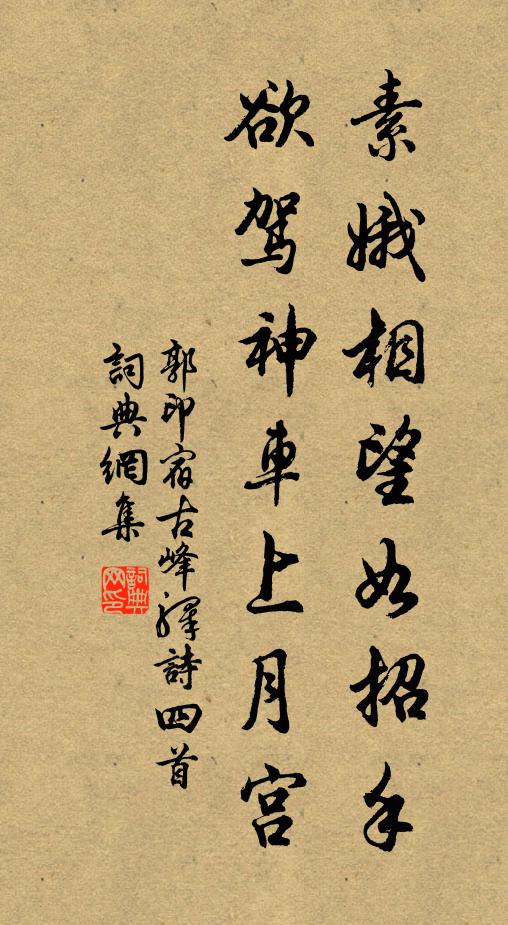 素娥相望如招手
欲駕神車上月宮
郭印宿古峰驛詩四首
詞典網集
詞典网印